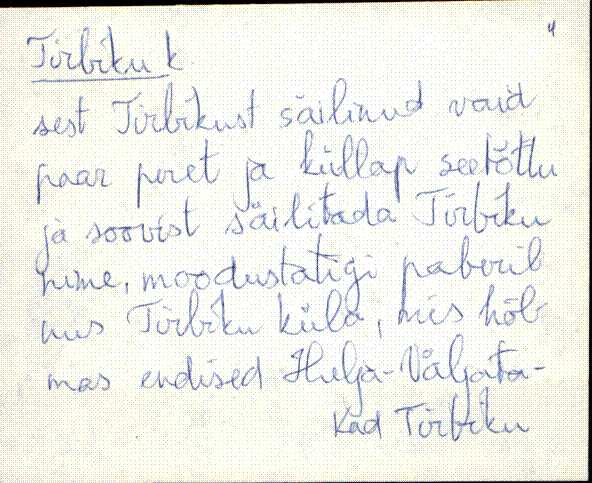 4
Tirbiku k
sest Tirbikust säilinud vaid
paar peret ja küllap seetõttu
ja soovist säilitada Tirbiku
nime, moodustatigi paberil
uus Tirbiku küla, mis hõl-
mas endised Hulja-Väljata-
kad Tirbiku